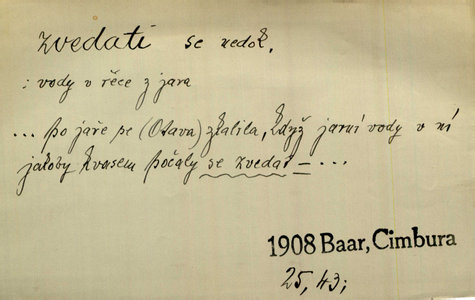 zvedati se nedok.
: vody v řěce z jara
... po jaře se (Otava) zkalila, když jarní vody v ní
jakoby kvasem počaly se zvedat – ...
1908 Baar, Cimbura
25, 43;